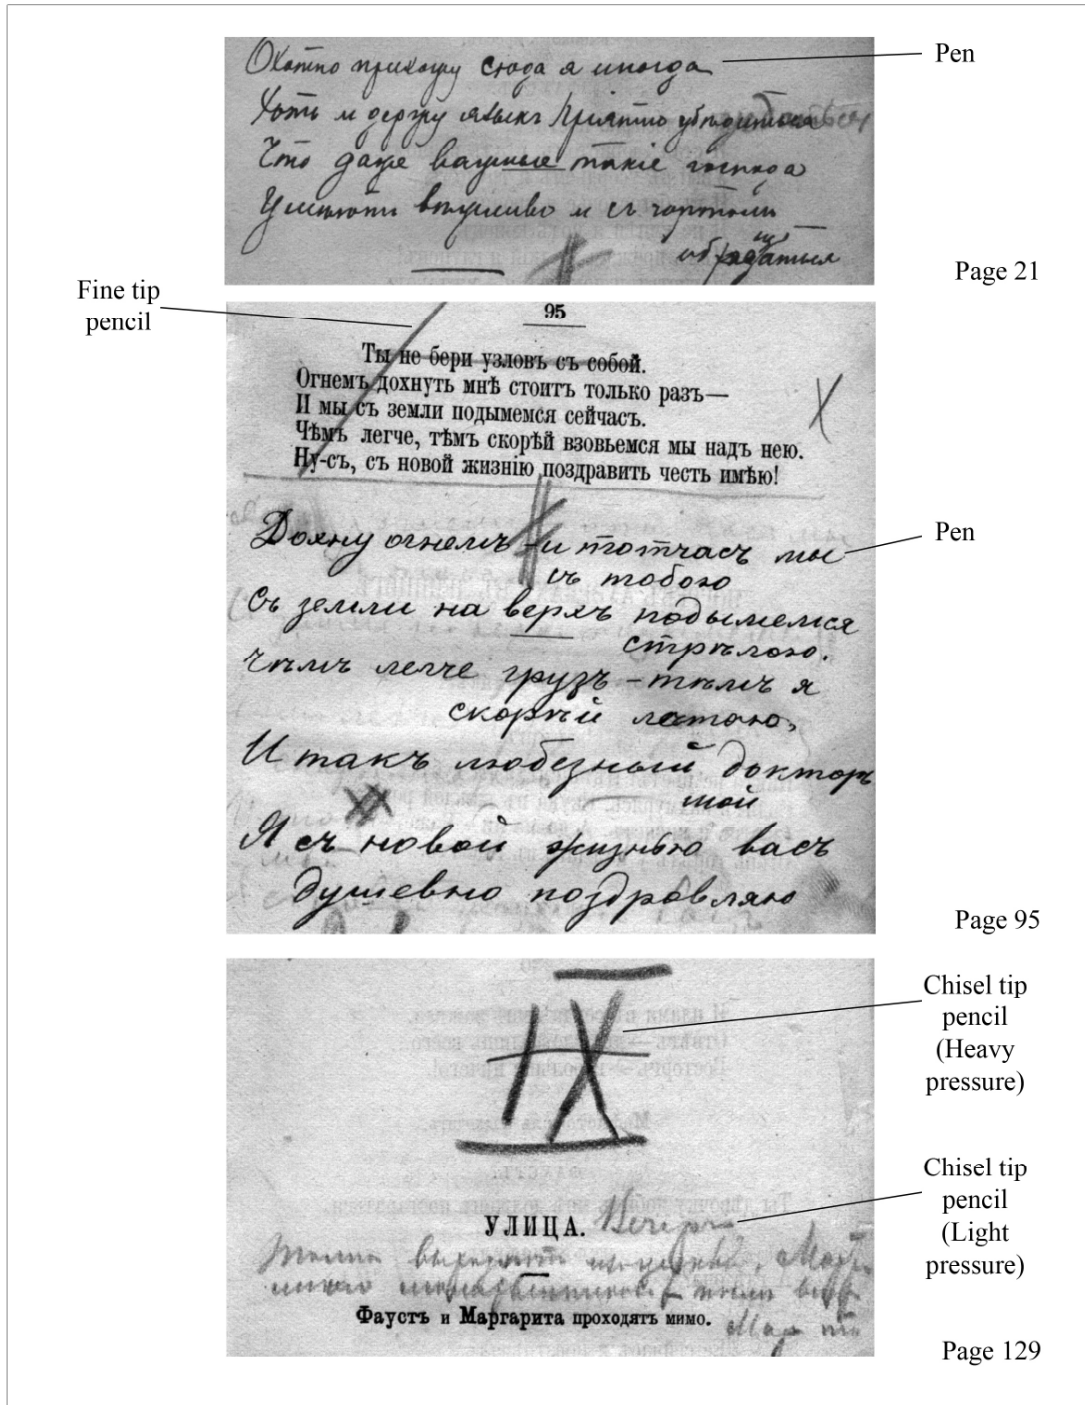 Охотно прихожу сюда я иногда
Pen
Хоть и держу языкъ Пріятно убѣдиться
Что даже важные такіе господа
Умѣютъ вѣжливо и съ чортомъ
обращаться
Page 21
Fine tip
pencil
95
Ты не бери узловъ съ собой.
Огнемъ дохнуть мнѣ стоитъ только разъ—
И мы съ земли подымемся сейчасъ.
Чѣмъ легче, тѣмъ скорѣй взовьемся мы надъ нею.
Ну-съ, съ новой жизнію поздравить честь имѣю!
Дохну огнемъ – и тотчасъ мы
съ тобою
Pen
Съ земли на верхъ подымемся
стрѣлою.
Чѣмъ легче грузъ – тѣмъ я
скорѣй летаю,
И такъ любезный докторъ
мой
Я съ новой жизнью васъ
душевно поздравляю
Page 95
IX
Chisel tip
pencil
(Heavy
pressure)
УЛИЦА. Вечеръ
Chisel tip
pencil
(Light
pressure)
Толпа выходитъ
Фаустъ и Маргарита проходятъ мимо.
Page 129